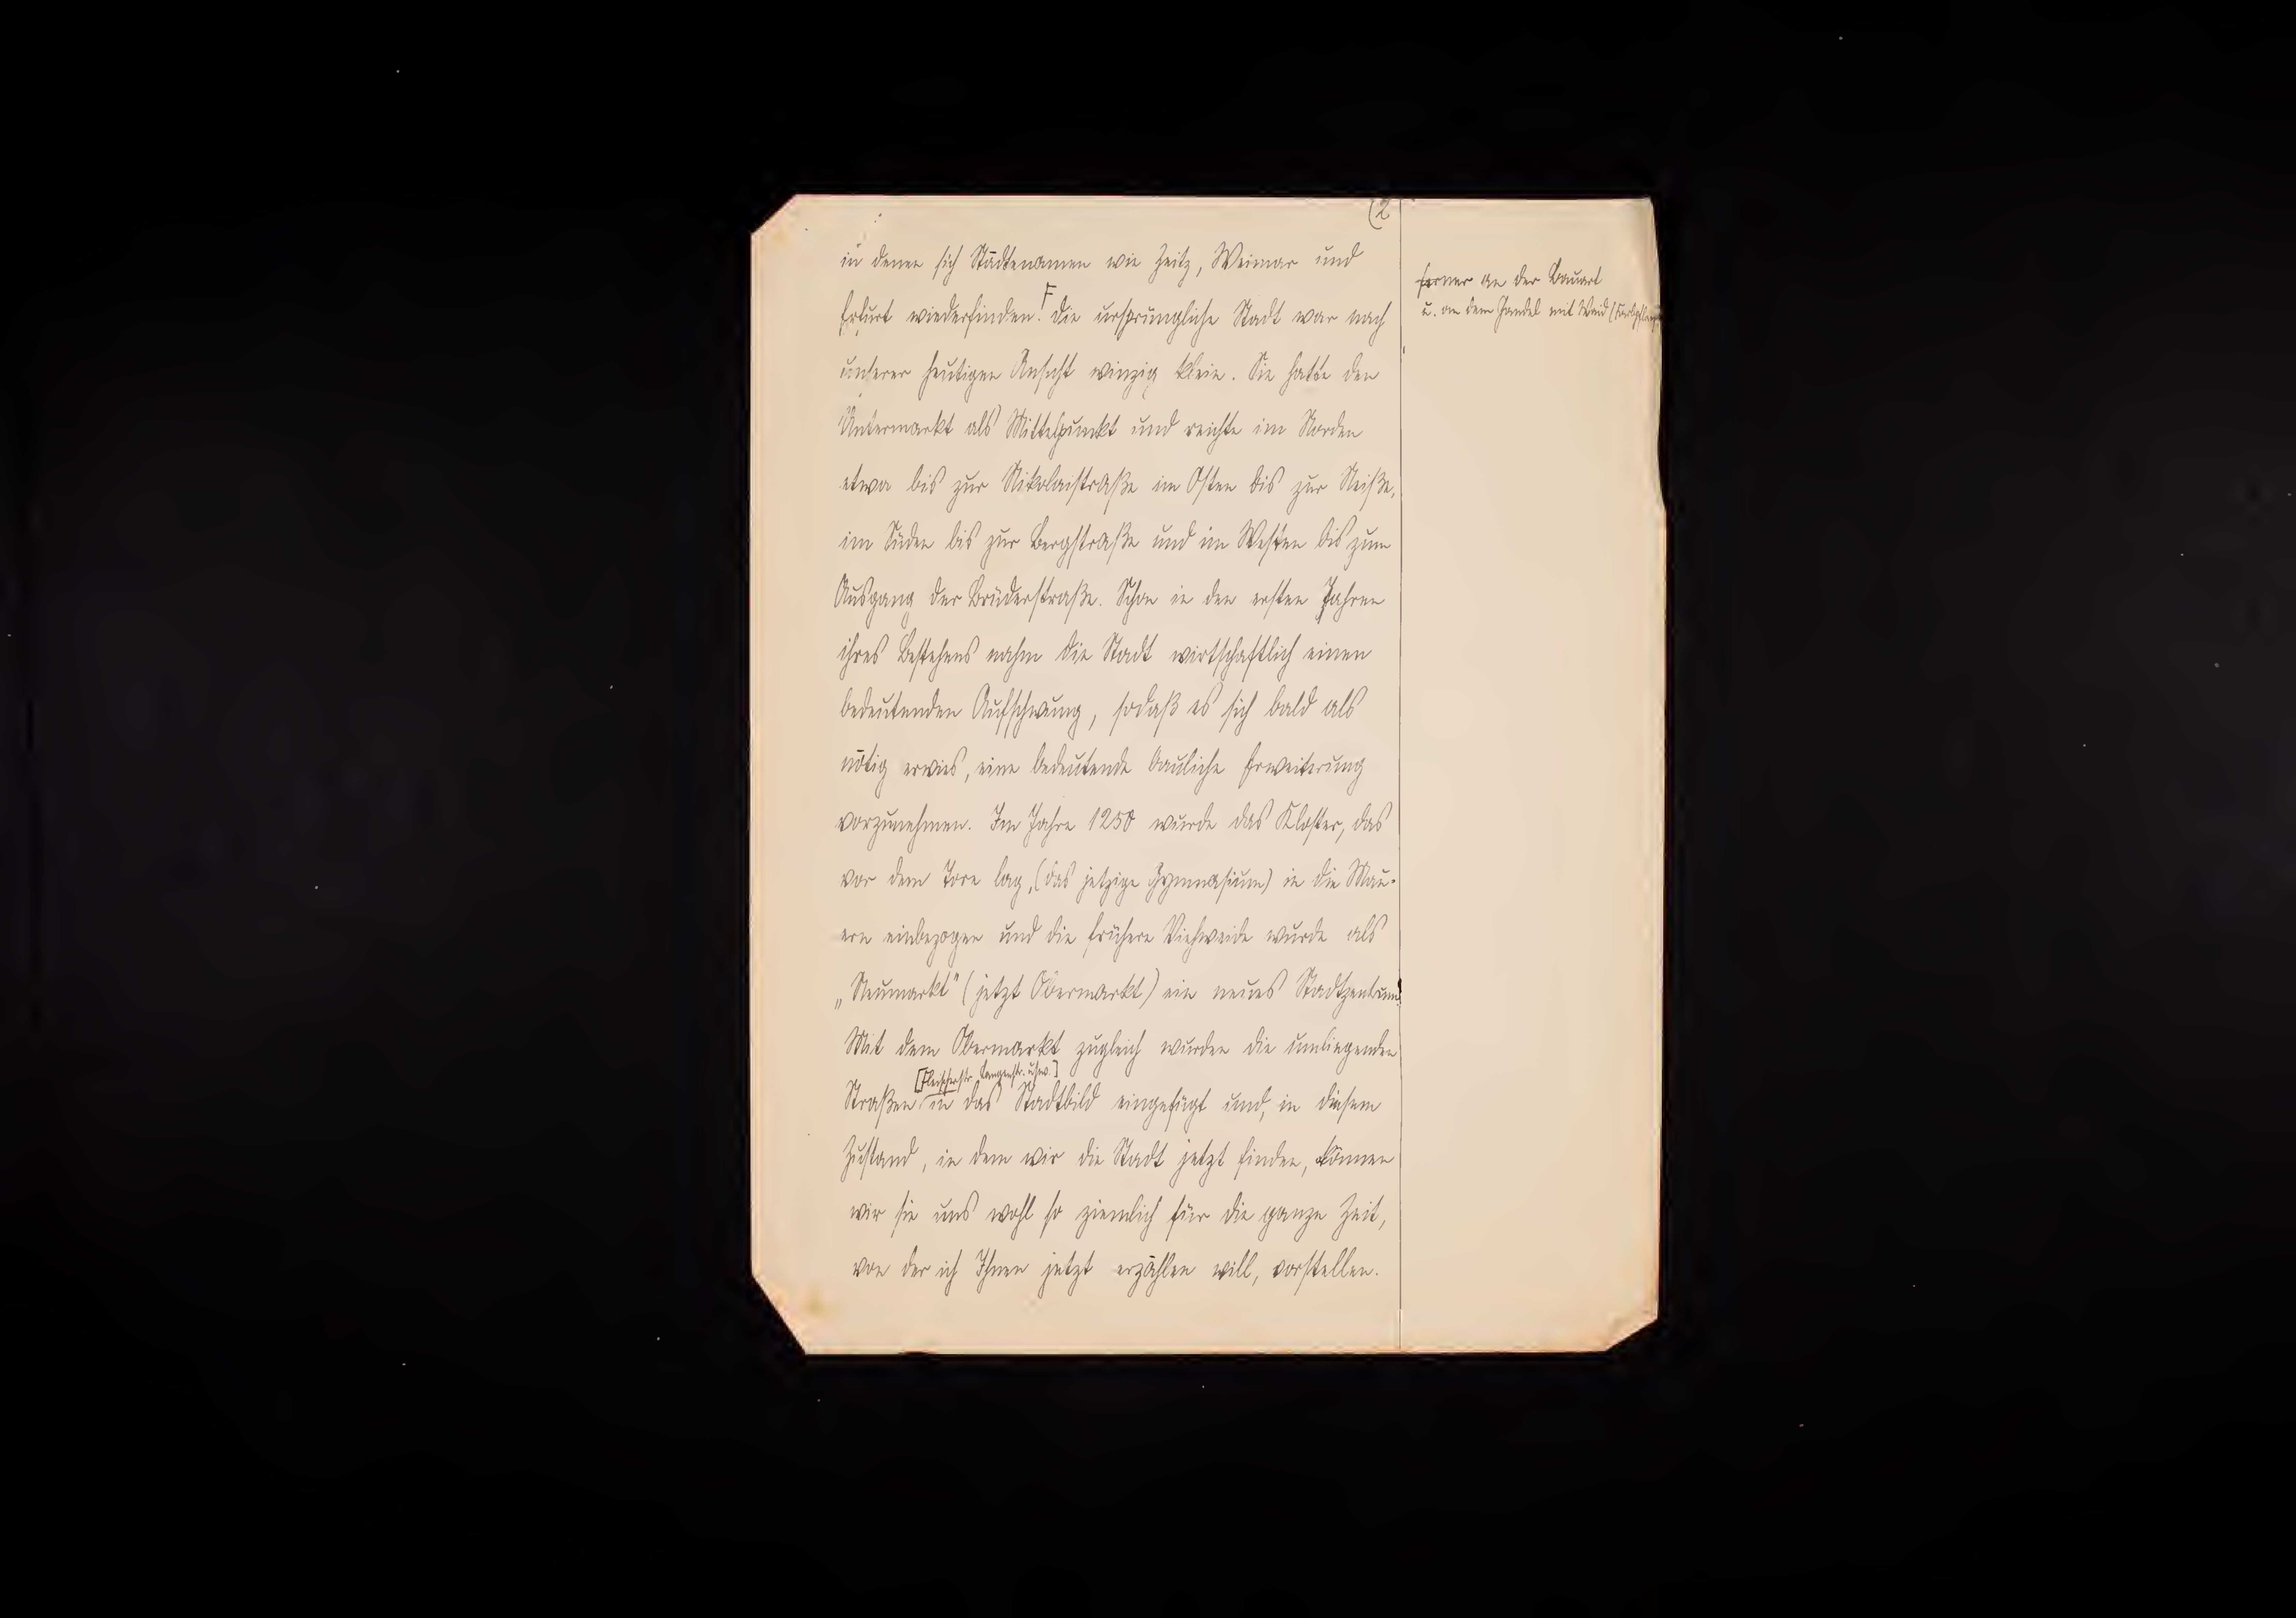 (2
in denen sich Städtenamen wie Zeitz, Weimar und
Erfurt wiederfinden. F Die ursprüngliche Stadt war nach
unserer heutigen Ansicht winzig klein. Sie hatte den
Untermarkt als Mittelpunkt und reichte im Norden
etwa bis zur Nikolaistraße im Osten bis zur Neiße,
im Süden bis zur Bergstraße und im Westen bis zum
Ausgang der Brüderstraße. Schon in den ersten Jahren
ihres Bestehens nahm die Stadt wirtschaftlich einen
bedeutenden Aufschwung, sodaß es sich bald als
nötig erwies, eine bedeutende bauliche Erweiterung
vorzunehmen. Im Jahre 1250 wurde das Kloster, das
vor dem Tore lag, (das jetzige Gymnasium) in die Mau-
ern einbezogen und die frühere Viehweide wurde als
„Neumarkt" (jetzt Obermarkt) ein neues Stadtzentrum.
Mit dem Obermarkt zugleich wurden die umliegenden
[Fleischerstr. Langenstr. usw.]
Straßen in das Stadtbild eingefügt und, in diesem
Zustand, in dem wir die Stadt jetzt finden, können
wir sie uns wohl so ziemlich für die ganze Zeit,
von der ich Ihnen jetzt erzählen will, vorstellen.
ferner an der Bauart
u. an dem Handel mit Waid